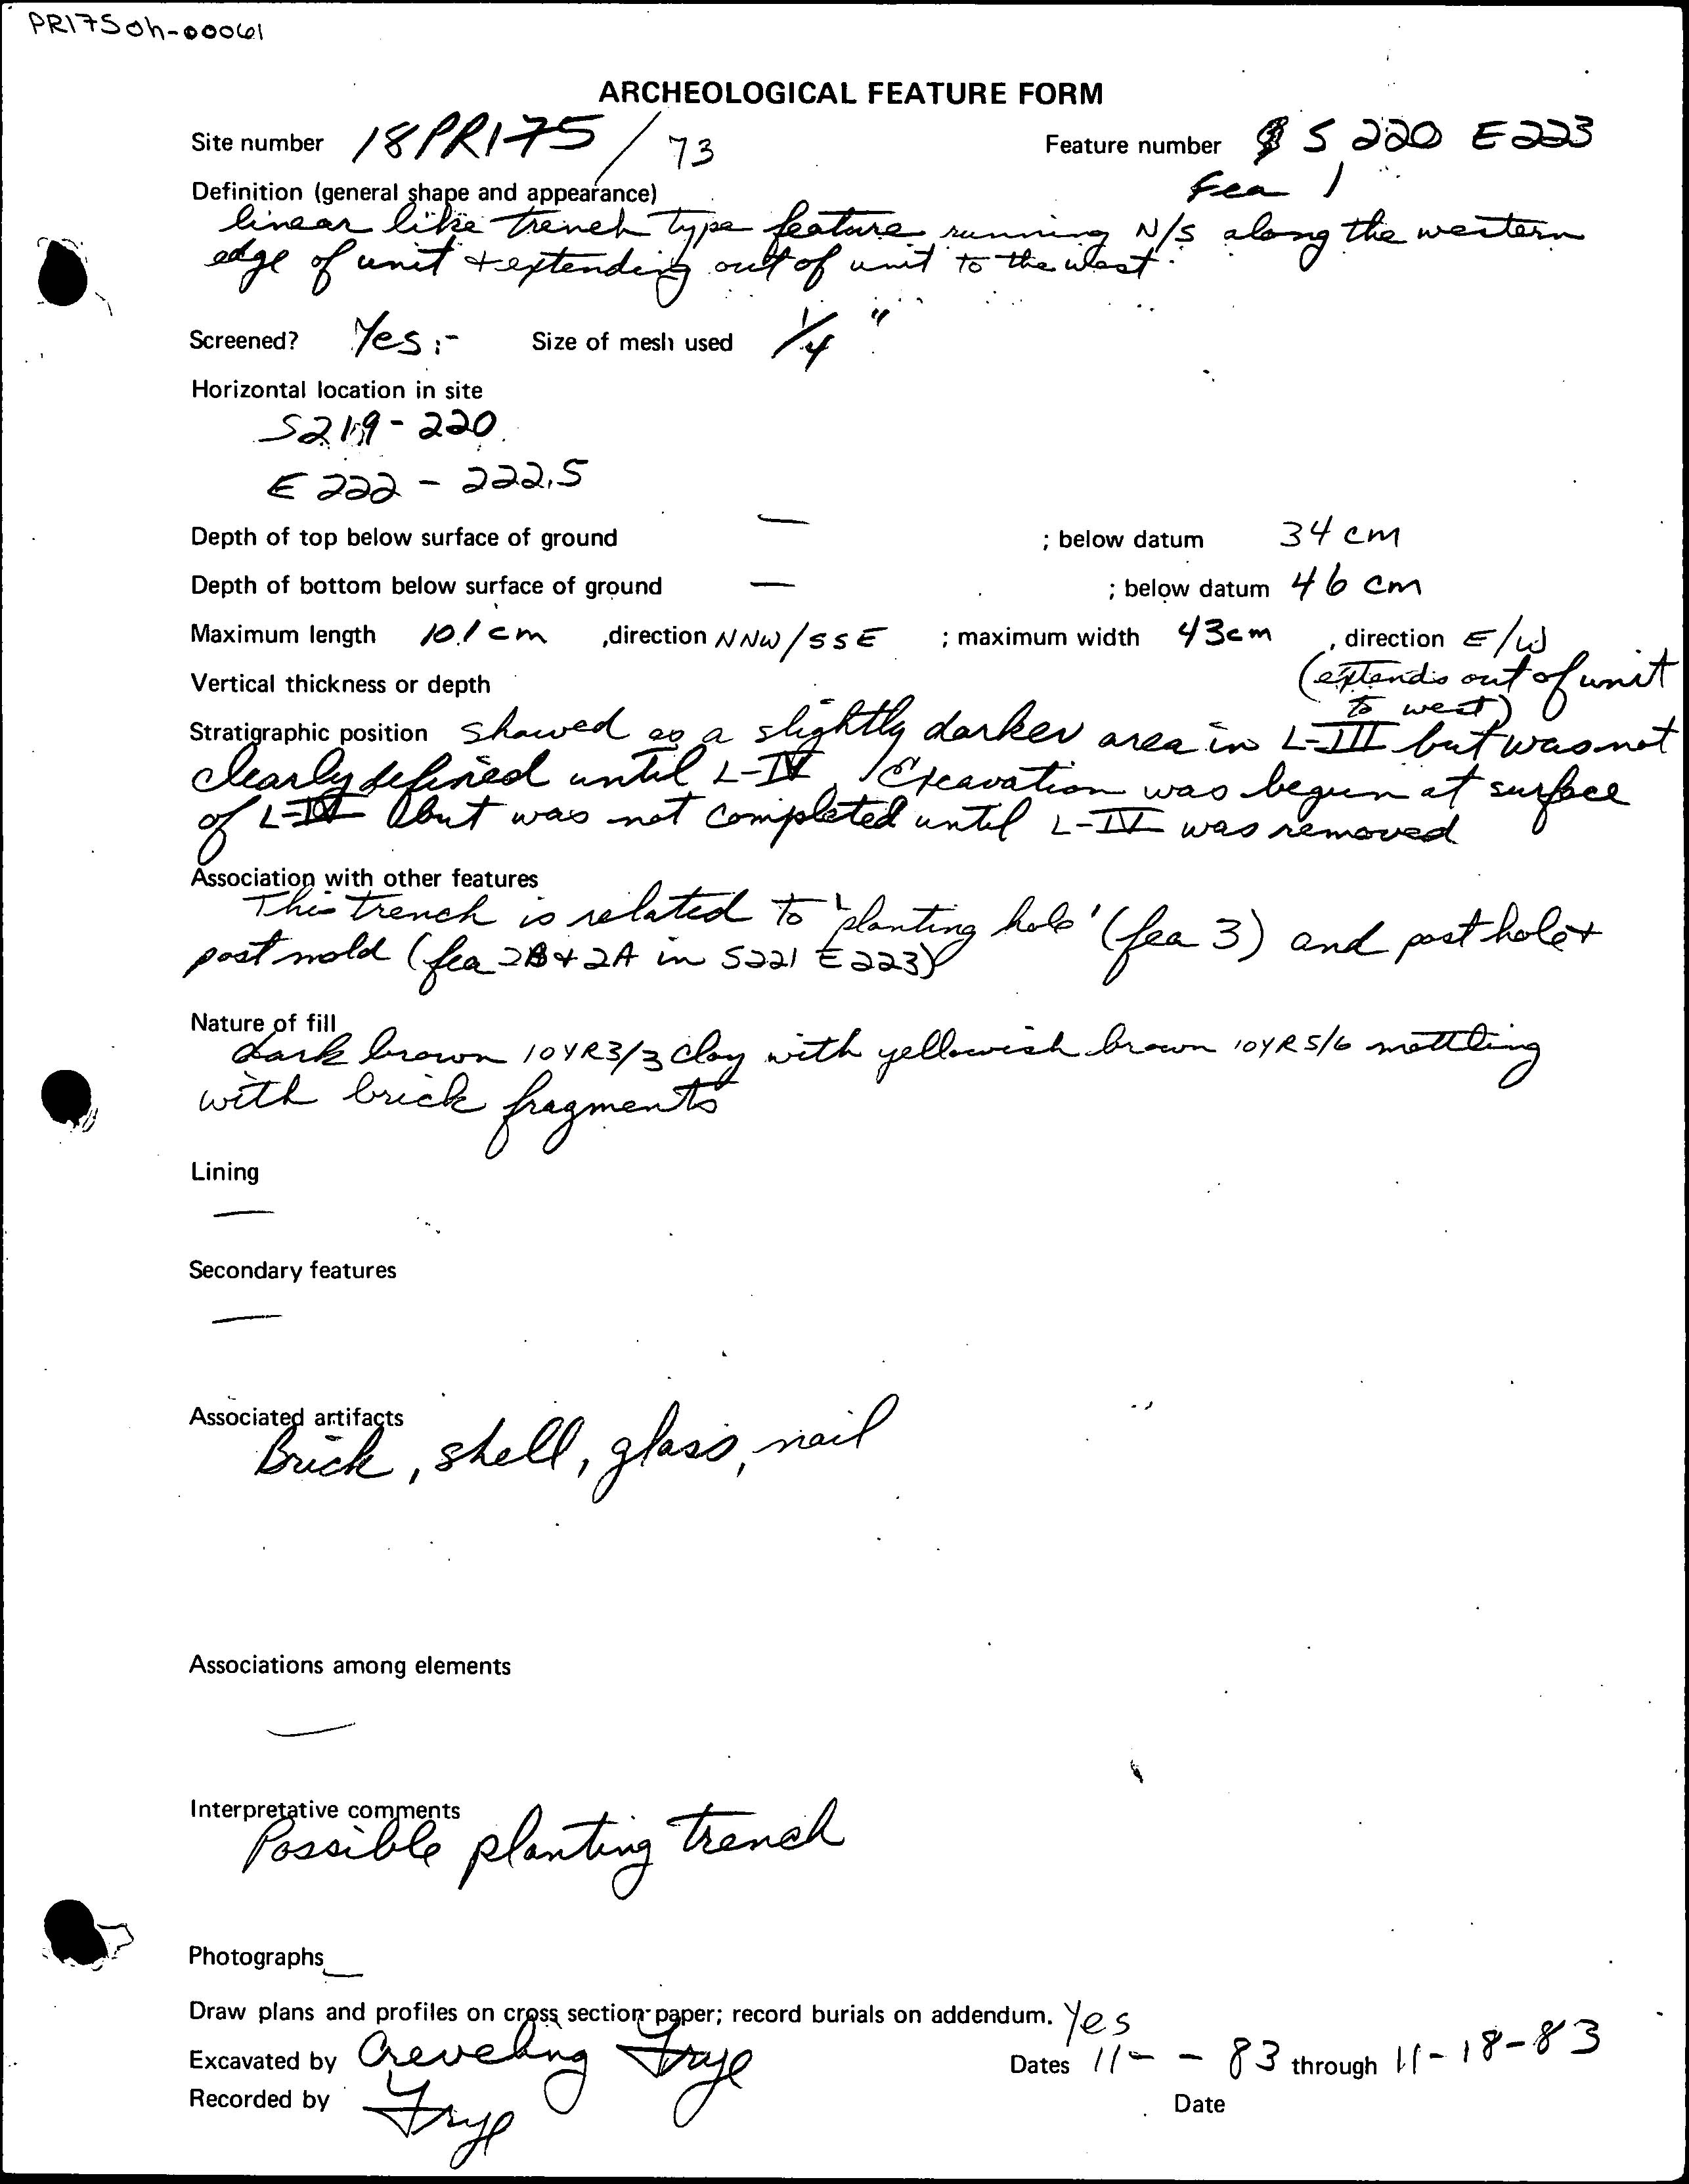 PR175oh-00061
ARCHEOLOGICAL FEATURE FORM
Site number 18PR175/73 Feature number S 220 E223
Fea 1
Definition (general shape and appearance)
linear like trench type feature running N/S along the western
edge of unit + extending out of unit to the west.
Screened? Yes Size of mesh used 1/4"
Horizontal location in site
S219-220
E 222 - 222.5
Depth of top below surface of ground — ; below datum 34 cm
Depth of bottom below surface of ground — ; below datum 46 cm
Maximum length 10.1 cm ,direction NNW/SSE ; maximum width 43cm , direction E/W
(extends out of unit
to west)
Vertical thickness or depth
Stratigraphic position showed as a slightly darker area in L-III but was not
clearly defined until L-IV. Excavation was begun at surface
of L-IV but was not completed until L-IV was removed
Association with other features
This trench is related to 'planting hole' (fea 3) and post hole +
post mold (fea 2B + 2A in S221 E223)
Nature of fill
dark brown 10YR3/3 clay with yellowish brown 10YR5/6 mottling
with brick fragments
Lining
—
Secondary features
—
Associated artifacts
Brick, shell, glass, nail
Associations among elements
—
Interpretative comments
Possible planting trench
Photographs —
Draw plans and profiles on cross section paper; record burials on addendum. Yes
Excavated by Creveling Frye Dates 11- - 83 through 11-18-83
Recorded by Frye Date